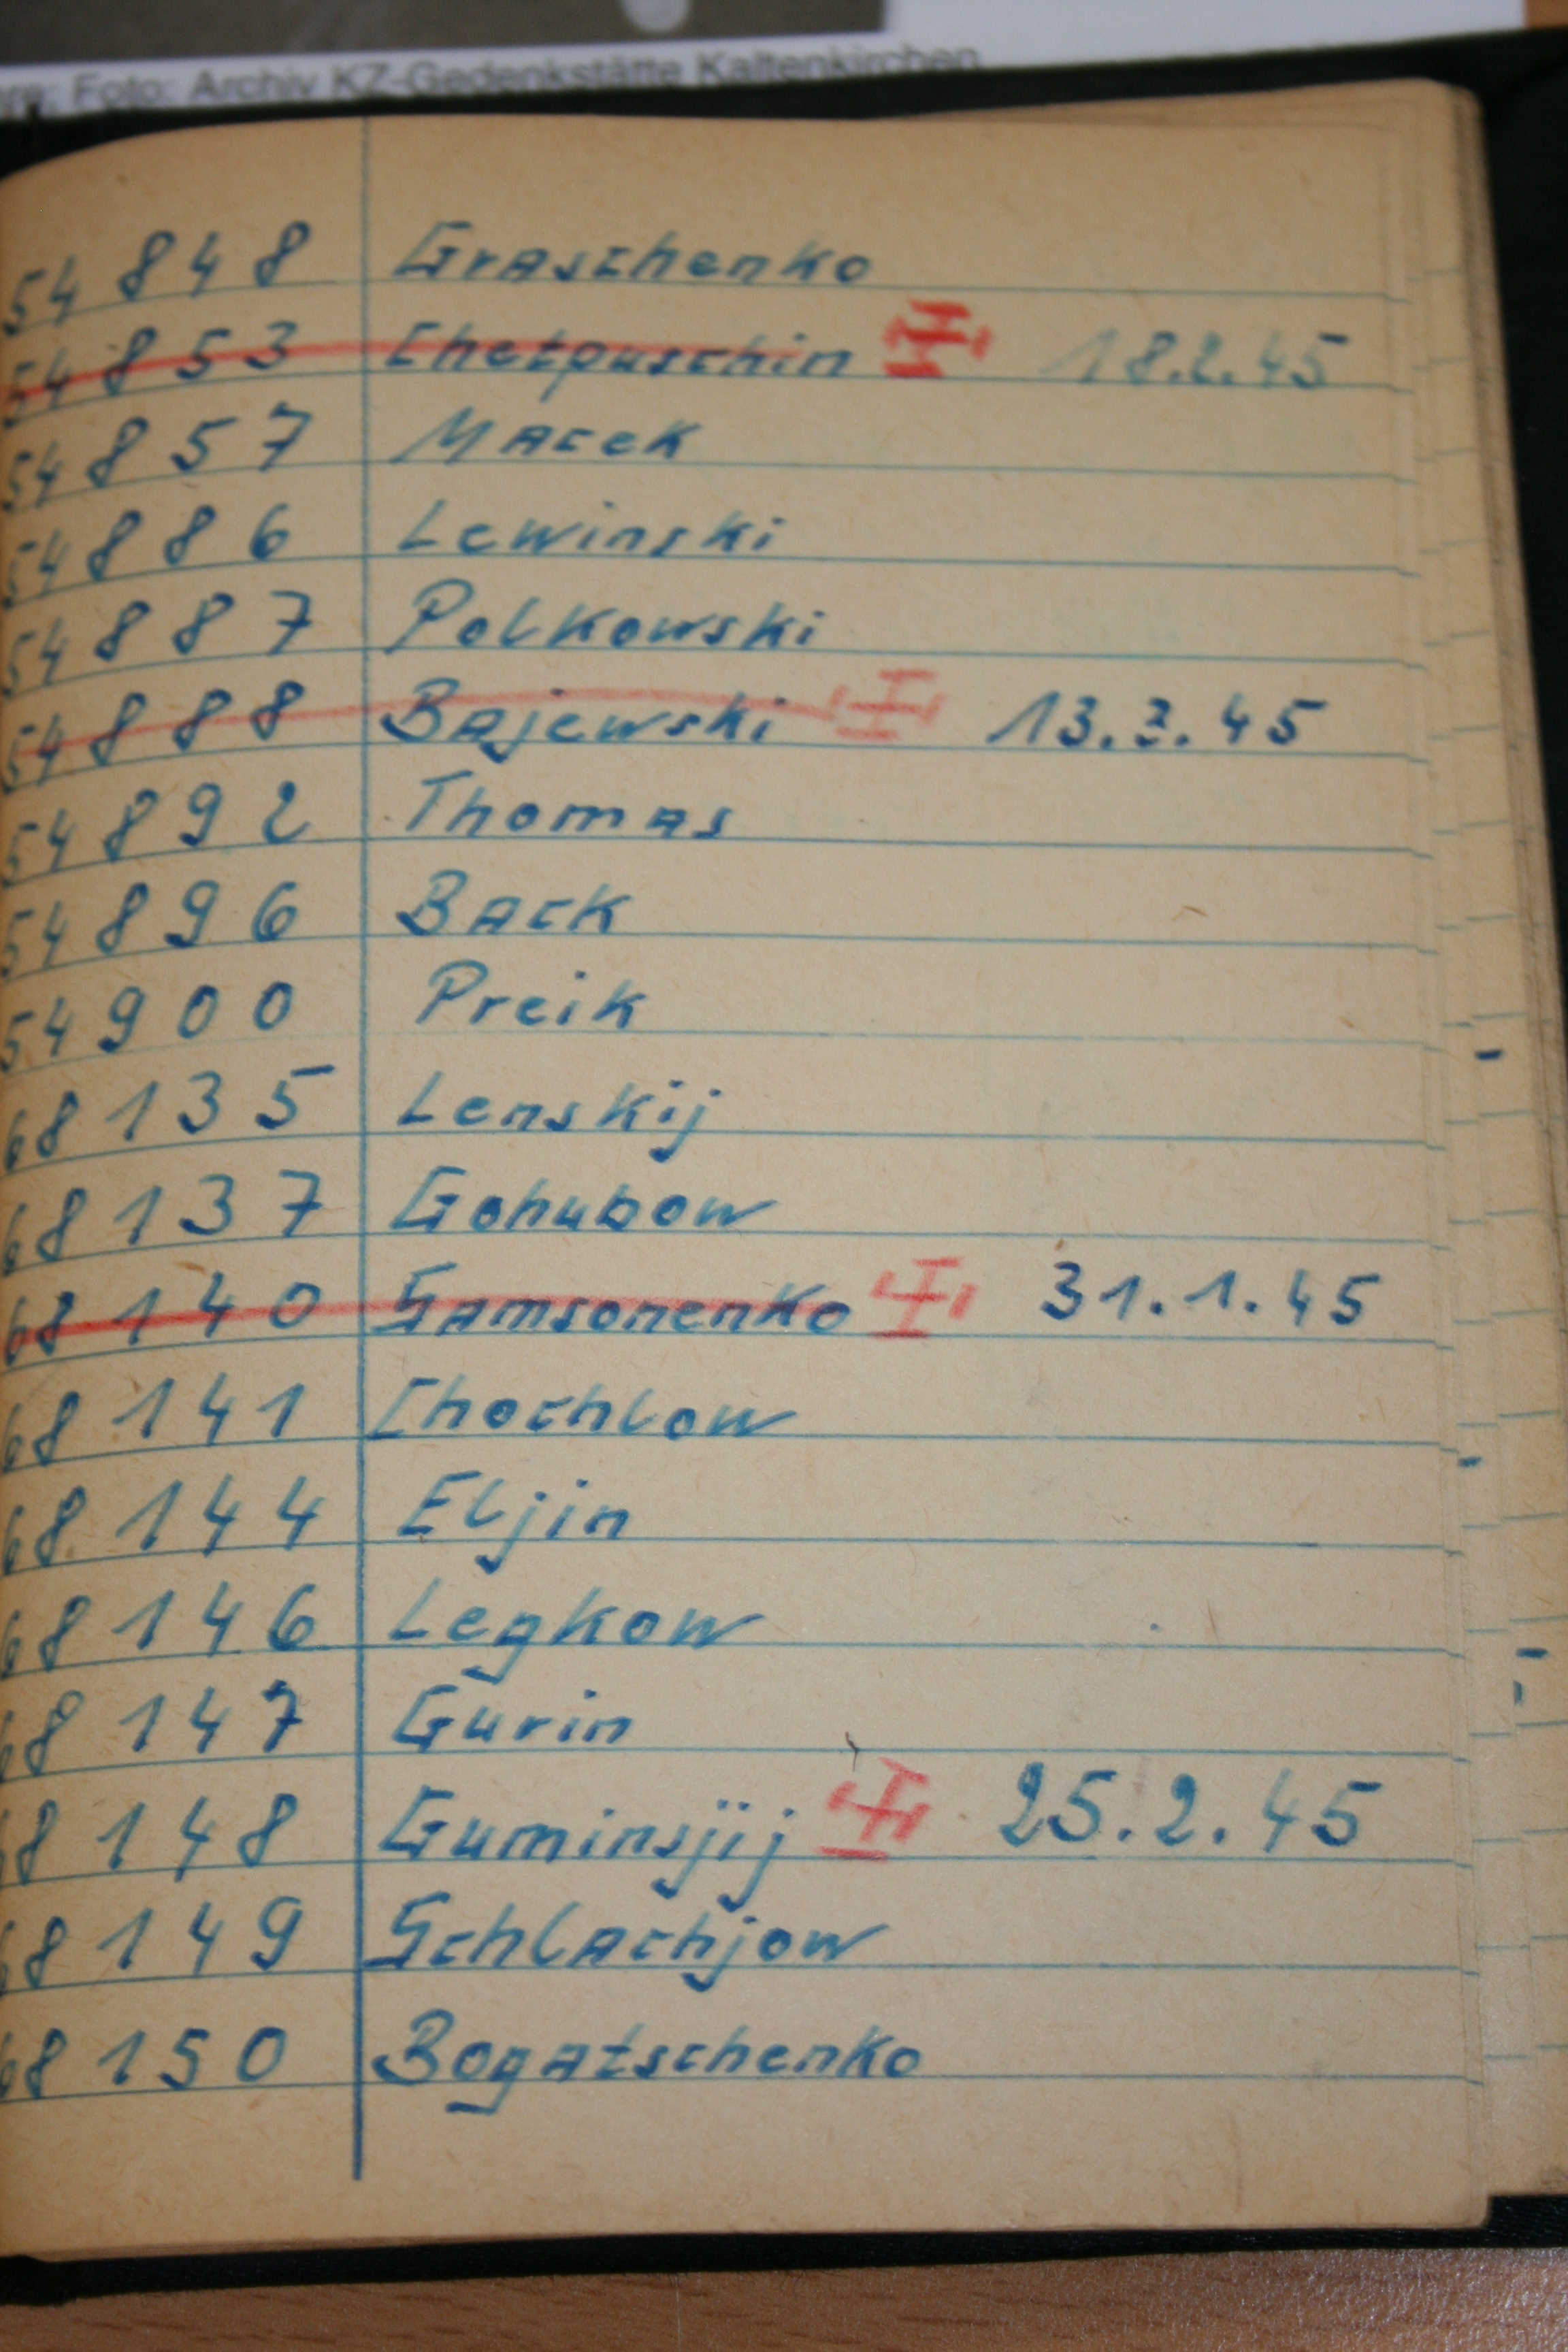 Foto: Archiv KZ-Gedenkstätte Kaltenkirchen
54 848 Graschenko
54 853 Chetpuschin 18.2.45
54 857 Macek
54 886 Lewinski
54 887 Polkowski
54 888 Bajewski 13.3.45
54 892 Thomas
54 896 Back
54 900 Preik
68 135 Lenskij
68 137 Gohubow
68 140 Samsonenko 31.1.45
68 141 Chochlow
68 144 Eljin
68 146 Legkow
68 147 Gurin
68 148 Guminsjij 25.2.45
68 149 Schlachjow
68 150 Bogatschenko